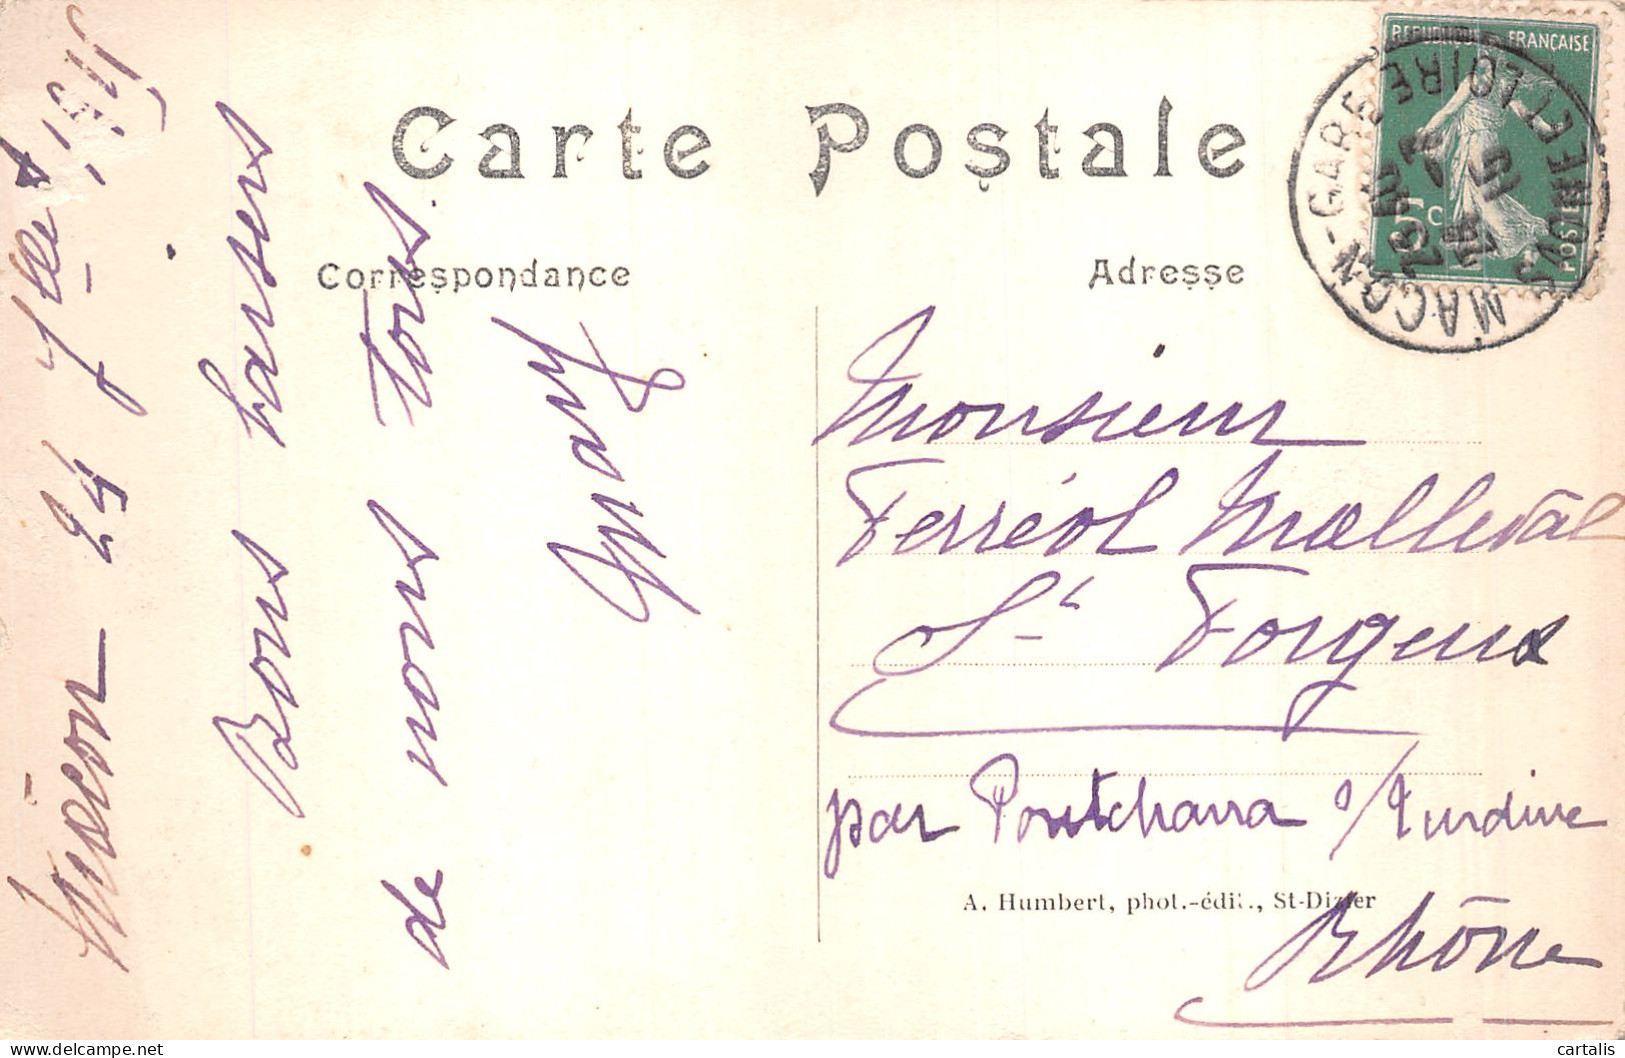 Carte Postale
Correspondance
Adresse
Mâcon 24 Juillet
Bons baisers
de nous tous
Monsieur
Ferréol Malleval
St Forgeux
par Pontcharra s/Turdine
Rhône
A. Humbert, phot.-édit., St-Dizier
REPUBLIQUE FRANÇAISE
5c
POSTES
MACON-GARE
SAONE ET LOIRE
cartalis